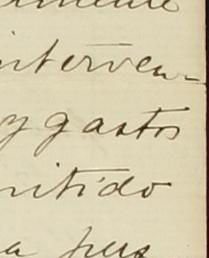 interven-
y gastos
mitido
a pers